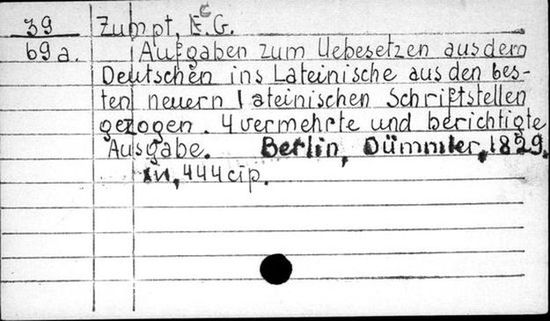 39 Zumpt, C.G.
69a. Aufgaben zum Uebesetzen aus dem
Deutschen ins Lateinische aus den bes-
ten neuern lateinischen Schriftstellen
gezogen. 4 vermehrte und berichtigte
Ausgabe. Berlin, Dümmler, 1829.
444 p.